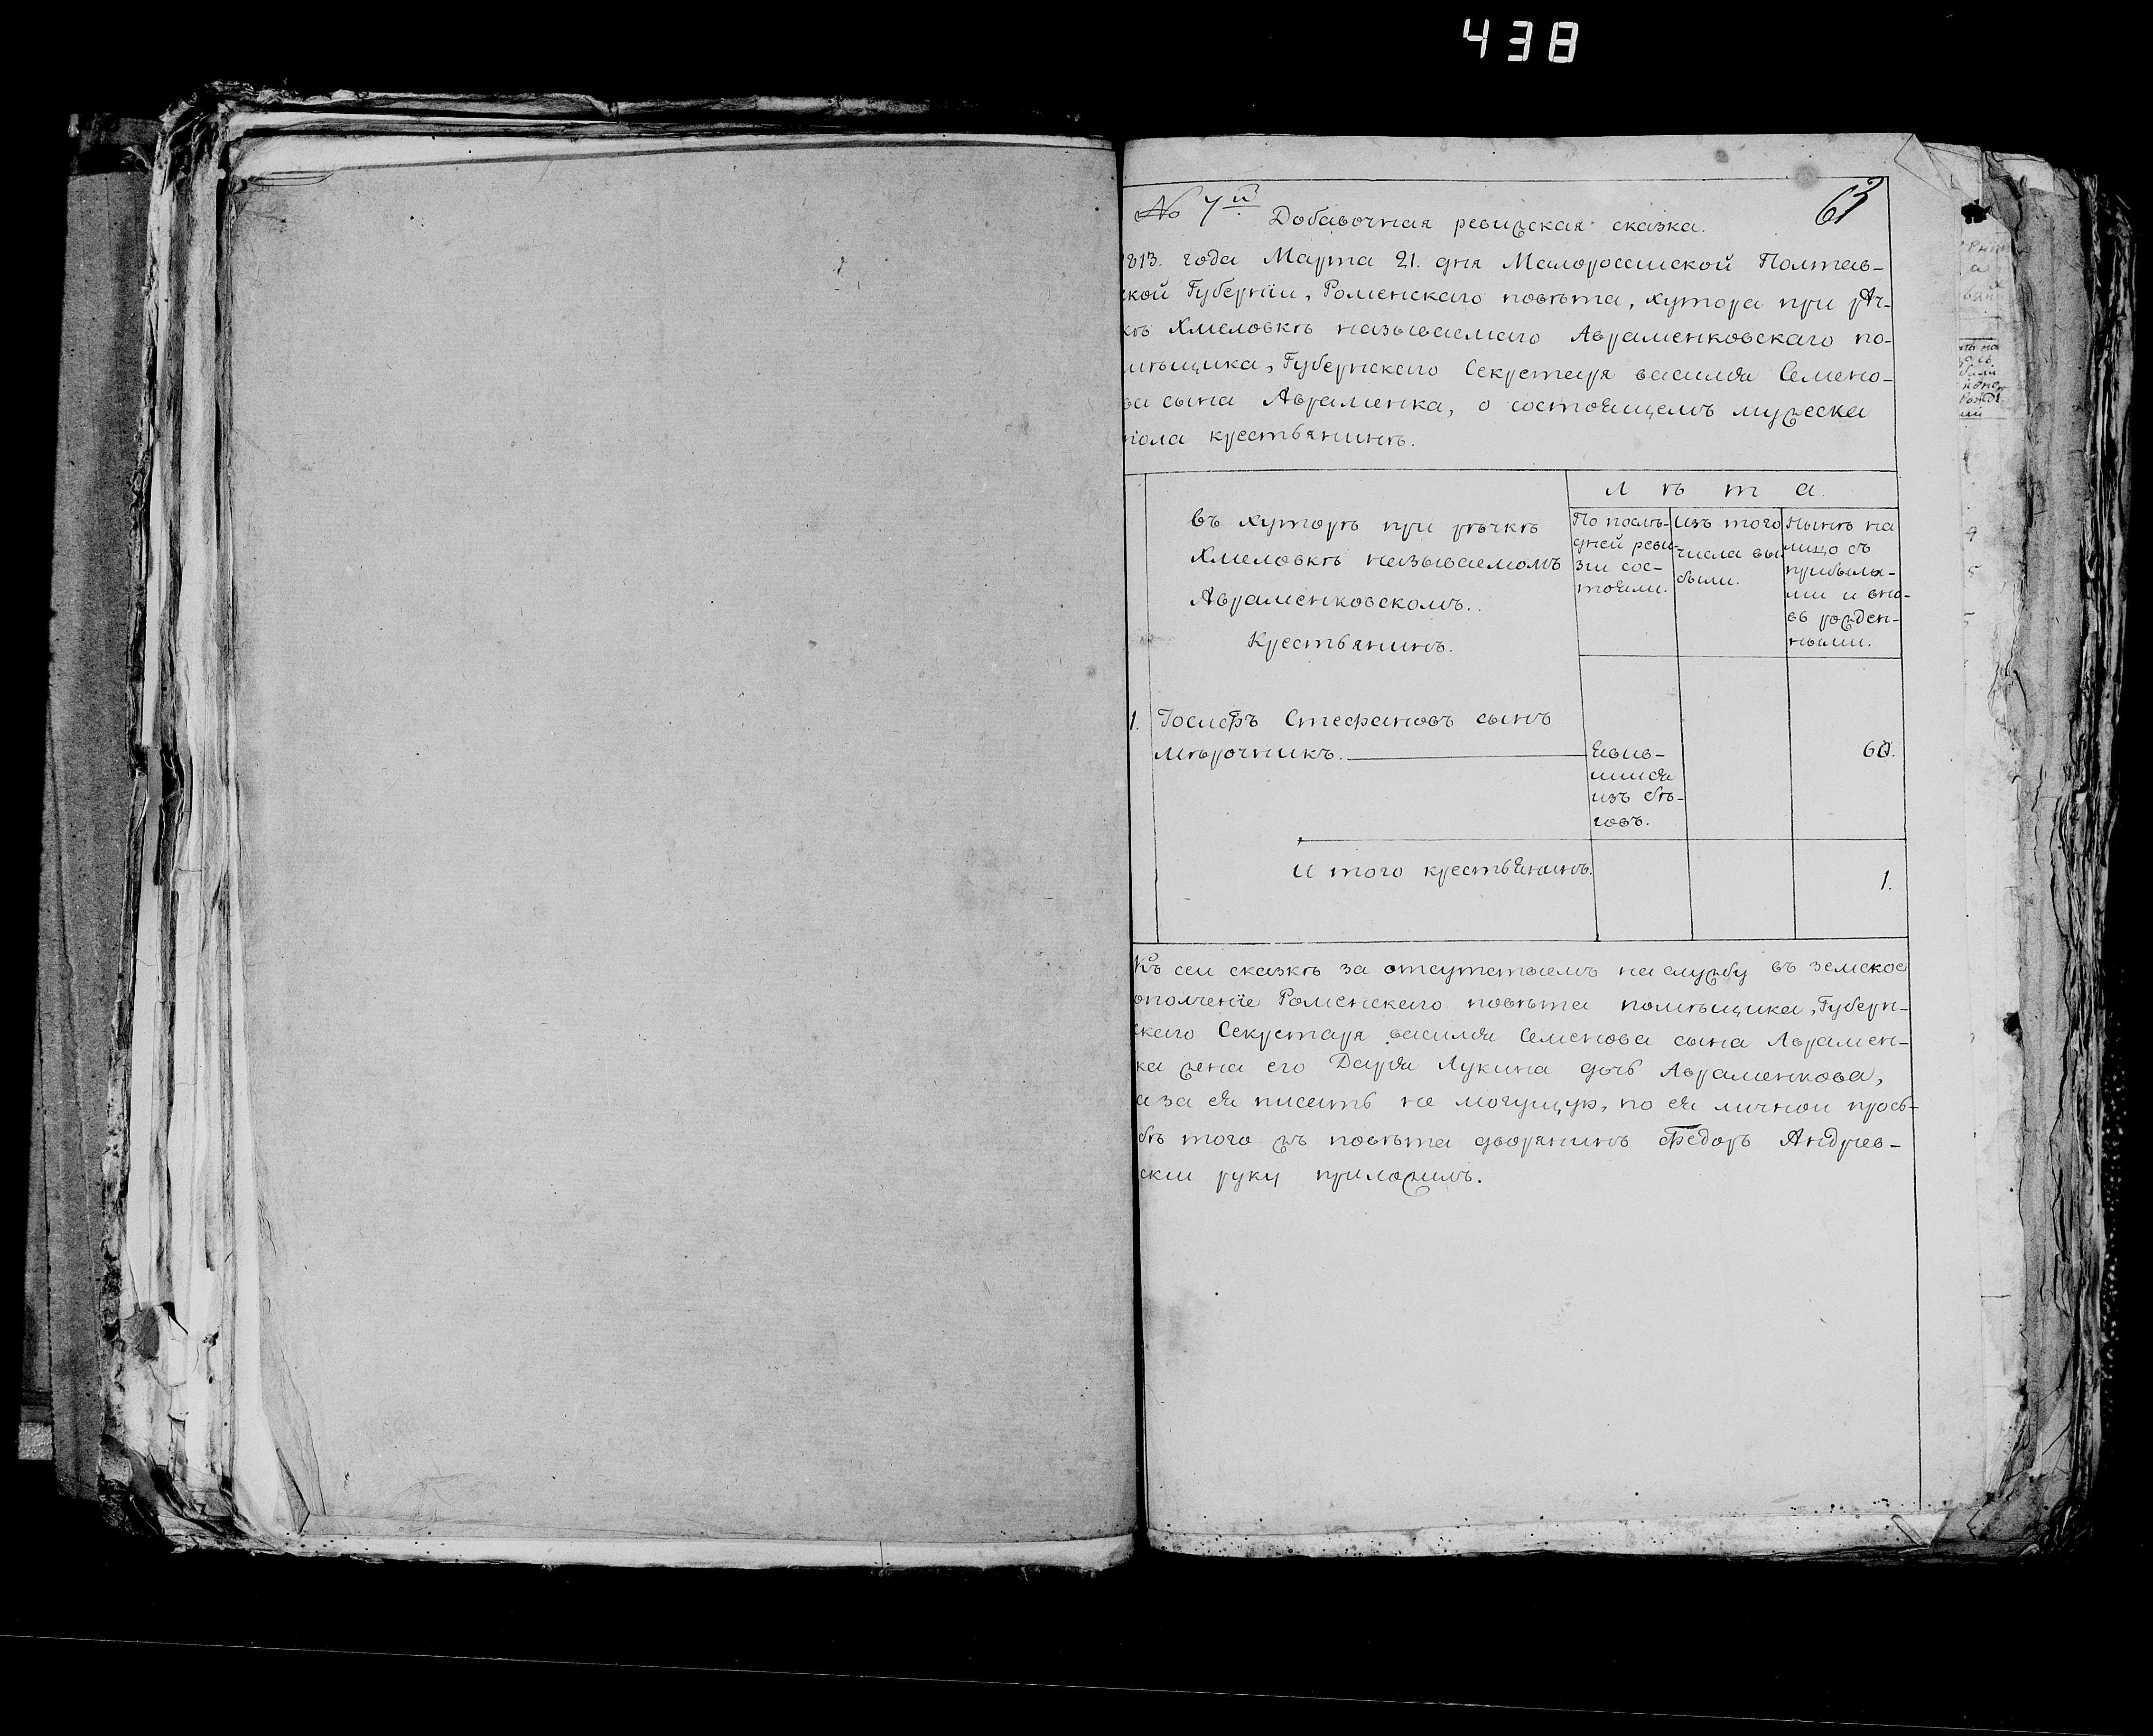 438
№ 7й
63
Добавочная ревижская сказка.
1813. года Марта 21. дня Малоросийской Полтав-
ской Губернїи, Роменскаго повѣта, хутора при рѣч-
кѣ Хмеловкѣ называемаго Авраменковскаго по-
мѣщика, Губернскаго Секретаря василия Семено-
ва сына Авраменка, о состоящемъ мужеска
пола крестьянинѣ.
въ хуторѣ при рѣчкѣ
Хмеловкѣ называемомъ
Авраменковскомъ.
Крестьянинъ.
лѣта.
По послѣ-
дней реви-
зіи сос-
тояли.
Изъ того
числа вы-
были.
Нынѣ на
лицо съ
прибылы-
ми и вно-
вь рожден-
ными.
1. Іосифъ Стефановъ сынъ
Мѣрочникъ.
Явив-
шийся
изъ бѣ-
говъ.
60.
И того крестьянинъ.
1.
Къ сей сказкѣ за отсутствиемъ на службу въ земское
ополченїе Роменскаго повѣта помѣщика, Губерн-
скаго Секретаря василия Семенова сына Аврамен-
ка жена его Дарья Лукина дочь Авраменкова,
а за ея писать не могущую, по ея личной прозь-
бѣ того жъ повѣта дворянинъ Федоръ Андриев-
ский руку приложилъ.